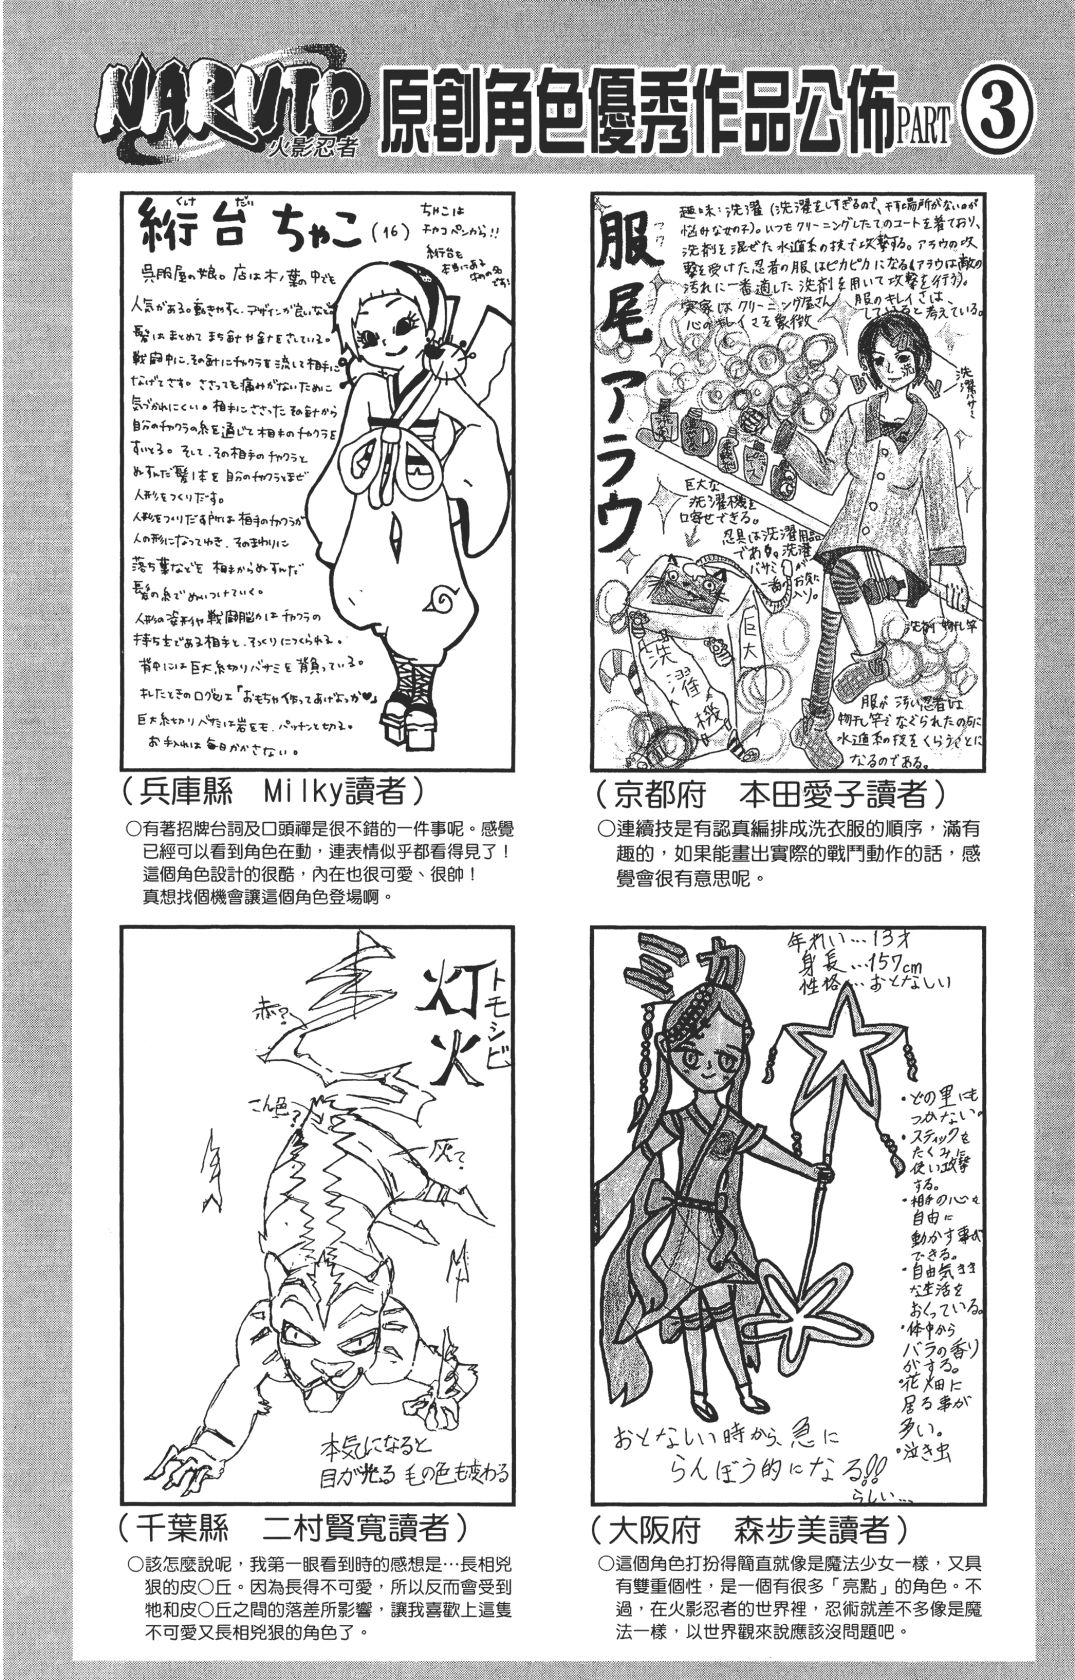 NARUTO
火影忍者
原創角色優秀作品公佈PART 3
絎台 ちゃこ (16)
くけ だい
ちゃこは
チャコペンから!!
絎台も
本当にある
ものの名
です!
呉服屋の娘。店は木ノ葉の中でも
人気がある。動きやすく、デザインが良いなど。
髪はまとめてまち針や針をさしている。
戦闘中に、その針にチャクラを流して相手に
なげてさす。ささっても痛みがないために
気づかれにくい。相手にささったその針から
自分のチャクラの糸を通じて相手のチャクラを
すいとる。そして、その相手のチャクラと
ぬすんだ髪1本を自分のチャクラとまぜ
人形をつくりだす。
人形をつくりだす時は相手のチャクラが
人の形になってゆき、そのまわりに
落ち葉などを相手からぬすんだ
髪の糸でぬいつけていく。
人形の姿形や戦闘脳力はチャクラの
持ち主である相手と、そっくりにつくられる。
背中には巨大糸切りバサミを背負っている。
キレたときのログセは「おもちゃ作ってあげよっか♥」
巨大糸切りバサミは岩をも、バッチンと切る。
お手入れは毎日かかさない。
(兵庫縣 Milky讀者)
○有著招牌台詞及口頭禪是很不錯的一件事呢。感覺
已經可以看到角色在動,連表情似乎都看得見了!
這個角色設計的很酷,內在也很可愛、很帥!
真想找個機會讓這個角色登場啊。
服尾アラウ
趣味:洗濯(洗濯をしすぎるので、干す場所がないのが
悩みな女の子)。いつもクリーニングしたてのコートを着ており、
洗剤を混ぜた水遁系の技で攻撃する。アラウの攻
撃を受けた忍者の服はピカピカになる(アラウは敵の
汚れに一番適した洗剤を用いて攻撃を行う)。
実家はクリーニング屋さん 服のキレイさは、
心のキレイさを象徴 していると考えている。
洗濯バサミ
巨大な
洗濯機を
口寄せできる。
忍具は洗濯用品
である。洗濯
バサミが
一番のお気に
入り。
巨大
洗濯機
洗剤 物干し竿
服が汚い忍者は
物干し竿でなぐられたのちに
水遁系の技をくらうことに
なるのである。
(京都府 本田愛子讀者)
○連續技是有認真編排成洗衣服的順序,滿有
趣的,如果能畫出實際的戰鬥動作的話,感
覺會很有意思呢。
灯火
トモシビ
赤?
こん色?
灰?
本気になると
目が光る 毛の色も変わる
(千葉縣 二村賢寬讀者)
○該怎麼說呢,我第一眼看到時的感想是…長相兇
狠的皮○丘。因為長得不可愛,所以反而會受到
牠和皮○丘之間的落差所影響,讓我喜歡上這隻
不可愛又長相兇狠的角色了。
ミカ
年れい…13才
身長…157cm
性格…おとなしい
・どの里にも
つかない。
・スティックを
たくみに
使い攻撃
する。
・相手の心を
自由に
動かす事が
できる。
・自由気まま
な生活を
おくっている。
・体中から
バラの香り
がする。
・花畑に
居る事が
多い。
・泣き虫
おとなしい時から、急に
らんぼう的になる!!
らしい…
(大阪府 森步美讀者)
○這個角色打扮得簡直就像是魔法少女一樣,又具
有雙重個性,是一個有很多「亮點」的角色。不
過,在火影忍者的世界裡,忍術就差不多像是魔
法一樣,以世界觀來說應該沒問題吧。